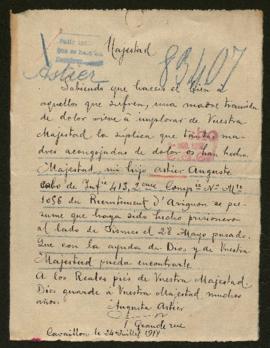 Majestad
83407
Astier
Sabiendo que haceis el bien a
aquellos que sufren, una madre transida
de dolor viene à implorar de Vuestra
Majestad la suplica que tantas ma
dres acongojadas de dolor os han hecho
Majestad, mi hijo Astier Auguste
cabo de Infie 413, 9eme Compie Nº Mle
1056 du Recrutement d'Avignon se pre
sume que haya sido hecho prisionero
al lado de Fismes el 28 Mayo pasado.
Que con la ayuda de Dios y de Vuestra
Majestad pueda encontrarle
A los Reales piés de Vuestra Majestad
Dios guarde à Vuestra Majestad muchos
años.
Augusta Astier
Grande rue
Cavaillon le 24 Juillet 1918